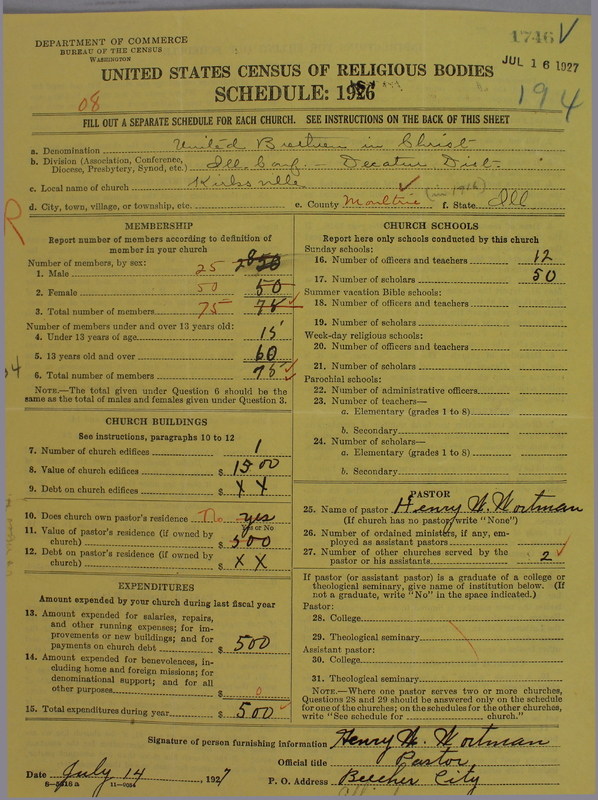 DEPARTMENT OF COMMERCE
BUREAU OF THE CENSUS
WASHINGTON
1746
JUL 16 1927
UNITED STATES CENSUS OF RELIGIOUS BODIES
SCHEDULE: 1926
08
194
FILL OUT A SEPARATE SCHEDULE FOR EACH CHURCH. SEE INSTRUCTIONS ON THE BACK OF THIS SHEET
a. Denomination United Brethren in Christ
b. Division (Association, Conference, Diocese, Presbytery, Synod, etc.) Ill. Conf. - Decatur Dist.
c. Local name of church Kirksville
d. City, town, village, or township, etc. e. County Moultrie (in 1916) f. State Ill
MEMBERSHIP
Report number of members according to definition of
member in your church
Number of members, by sex:
1. Male 25
2. Female 50 50
3. Total number of members 75 78
Number of members under and over 13 years old:
4. Under 13 years of age 15
5. 13 years old and over 60
6. Total number of members 75
NOTE.—The total given under Question 6 should be
same as the total of males and females given under Question 3.
CHURCH BUILDINGS
See instructions, paragraphs 10 to 12
7. Number of church edifices 1
8. Value of church edifices $ 1500
9. Debt on church edifices $ X X
10. Does church own pastor's residence No yes
Yes or No
11. Value of pastor's residence (if owned by
church) $ 500
12. Debt on pastor's residence (if owned by
church) $ X X
EXPENDITURES
Amount expended by your church during last fiscal year
13. Amount expended for salaries, repairs,
and other running expenses; for im-
provements or new buildings; and for
payments on church debt $ 500
14. Amount expended for benevolences, in-
cluding home and foreign missions; for
denominational support; and for all
other purposes $ 0
15. Total expenditures during year $ 500
CHURCH SCHOOLS
Report here only schools conducted by this church
Sunday schools:
16. Number of officers and teachers 12
17. Number of scholars 50
Summer vacation Bible schools:
18. Number of officers and teachers
19. Number of scholars
Week-day religious schools:
20. Number of officers and teachers
21. Number of scholars
Parochial schools:
22. Number of administrative officers
23. Number of teachers—
a. Elementary (grades 1 to 8)
b. Secondary
24. Number of scholars—
a. Elementary (grades 1 to 8)
b. Secondary
PASTOR
25. Name of pastor Henry W. Wortman
(If church has no pastor, write "None")
26. Number of ordained ministers, if any, em-
ployed as assistant pastors
27. Number of other churches served by the
pastor or his assistants 2
If pastor (or assistant pastor) is a graduate of a college or
theological seminary, give name of institution below. (If
not a graduate, write "No" in the space indicated.)
Pastor:
28. College
29. Theological seminary
Assistant pastor:
30. College
31. Theological seminary
NOTE.—Where one pastor serves two or more churches,
Questions 28 and 29 should be answered only on the schedule
for one of the churches; on the schedules for the other churches,
write "See schedule for church."
Signature of person furnishing information Henry W. Wortman
Official title Pastor
Date July 14 1927 P. O. Address Beecher City
8-5318a 11-9054